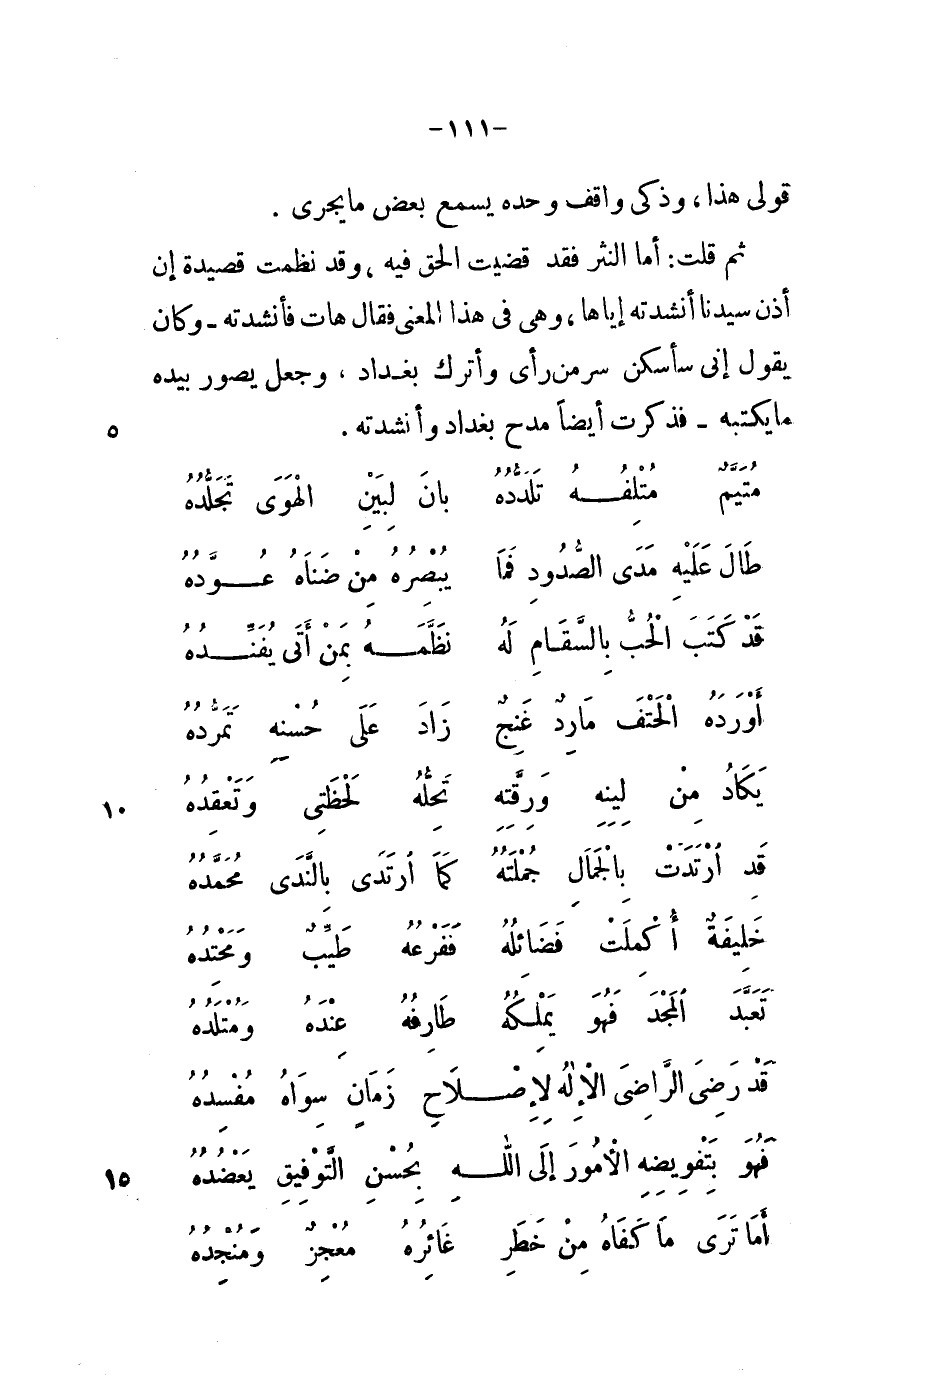 -١١١-
قولى هذا ، وذكى واقف وحده يسمع بعض مايجرى .
ثم قلت: أما النثر فقد قضيت الحق فيه ، وقد نظمت قصيدة إن
أذن سيدنا أنشدته إياها ، وهى فى هذا المعنى فقال هات فأنشدته ـ وكان
يقول إنى سأسكن سر من رأى وأترك بغداد ، وجعل يصور بيده
مايكتبه ـ فذكرت أيضاً مدح بغداد وأنشدته . ٥
مُتَيَّمٌ مُتْلِفُهُ تَلَدُّدُهُ بانَ لِبَيْنِ الْهَوَى تَجَلُّدُهُ
طَالَ عَلَيْهِ مَدَى الصُّدُودِ فَمَا يُبْصِرُهُ مِنْ ضَنَاهُ عُوَّدُهُ
قَدْ كَتَبَ الْحُبُّ بِالسَّقَامِ لَهُ نَظَّمَهُ بِمَنْ أَتَى يُفَنِّدُهُ
أَوْرَدَهُ الْحَتْفَ مَارِدٌ غَنِجٌ زَادَ عَلَى حُسْنِهِ تَمَرُّدُهُ
يَكَادُ مِنْ لِينِهِ وَرِقَّتِهِ تَحِلُّهُ لَحْظَتِى وَتَعْقِدُهُ ١٠
قَدِ اُرْتَدَتْ بِالْجَمَالِ جُمْلَتُهُ كَمَا اُرتَدَى بِالنَّدَى مُحَمَّدُهُ
خَلِيفَةٌ أُكْمِلَتْ فَضَائِلُهُ فَفَرْعُهُ طَيِّبٌ وَمَحْتِدُهُ
تَعَبَّدَ الْمَجْدَ فَهُوَ يَمْلِكُهُ طَارِفُهُ عِنْدَهُ وَمُتْلَدُهُ
قَدْ رَضِىَ الرَّاضِىَ الْإِلٰهُ لِإِصْلَاحِ زَمَانٍ سِوَاهُ مُفْسِدُهُ
فَهُوَ بِتَفْوِيضِهِ الْأُمُورَ إِلَى اللّٰهِ بِحُسْنِ التَّوْفِيقِ يَعْضُدُهُ ١٥
أَمَا تَرَى مَا كَفَاهُ مِنْ خَطَرٍ غَائِرُهُ مُعْجِزٌ وَمُنْجِدُهُ